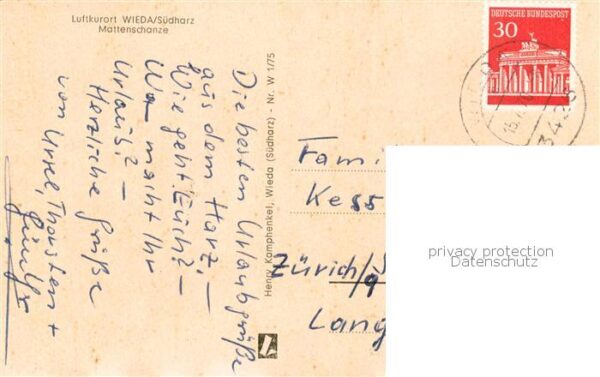 Luftkurort WIEDA/Südharz
Mattenschanze
Die besten Urlaubsgrüße
aus dem Harz. —
Wie geht's Euch? —
Wo macht Ihr
Urlaub? —
Herzliche Grüße
von Ursel, Thorsten +
Henry Kamphenkel, Wieda (Südharz) - Nr. W 1/75
DEUTSCHE BUNDESPOST
30
3426
Fami
Kess
Zürich/
Lang
privacy protection
Datenschutz